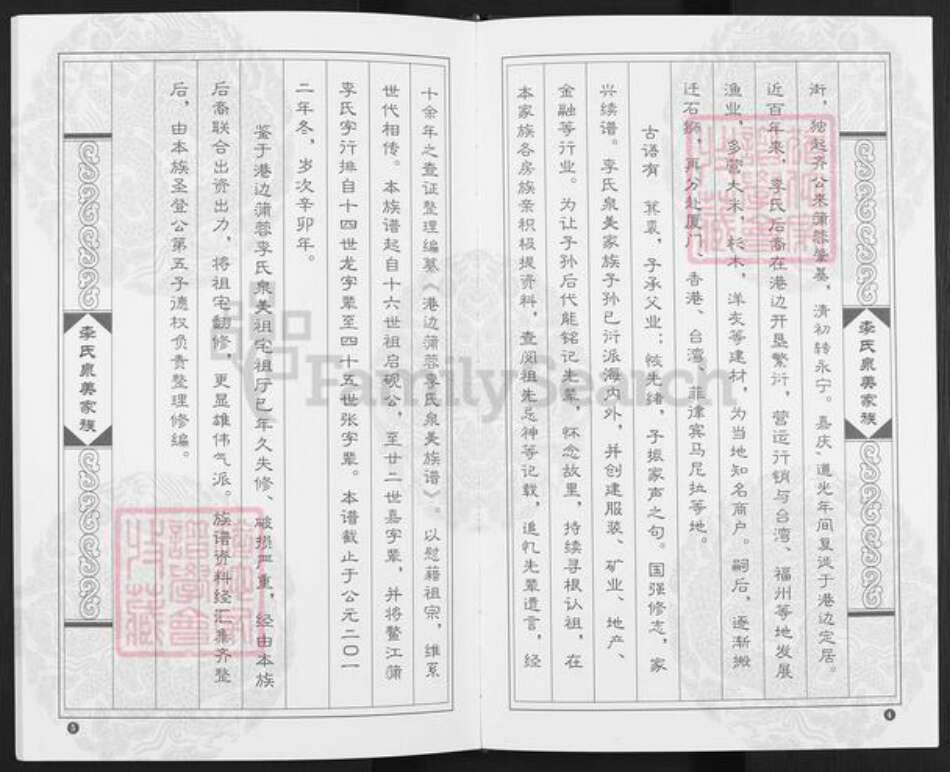 李氏泉美家族
街，独起齐公来蒲蓉肇基，清初转永宁。嘉庆、道光年间复迁于港边定居。
近百年来，李氏后裔在港边开垦繁衍，营运行销与台湾、福州等地发展
渔业，多营大米，杉木，洋灰等建材，为当地知名商户。嗣后，逐渐搬
迁石狮，再分赴厦门、香港、台湾、菲律宾马尼拉等地。
古谱有 箕裘，子承父业；候先绪，子振家声之句。国强修志，家
兴续谱。李氏泉美家族子孙已衍派海内外，并创建服装、矿业、地产、
金融等行业。为让子孙后代能铭记先辈，怀念故里，持续寻根认祖，在
本家族各房族亲积极提资料，查阅祖先忌神等记载，追忆先辈遗言，经
4
十余年之查证整理编纂《港边蒲蓉李氏泉美族谱》。以慰藉祖宗，维系
世代相传。本族谱起自十六世祖启砚公，至廿二世嘉字辈，并将鳌江蒲
李氏字行排自十四世龙字辈至四十五世张字辈。本谱截止于公元二〇一
二年冬，岁次辛卯年。
鉴于港边蒲蓉李氏泉美祖宅祖厅已年久失修、破损严重，经由本族
后裔联合出资出力，将祖宅翻修，更显雄伟气派。族谱资料经汇集齐整
后，由本族圣登公第五子德权负责整理修编。
李氏泉美家族
5
FamilySearch